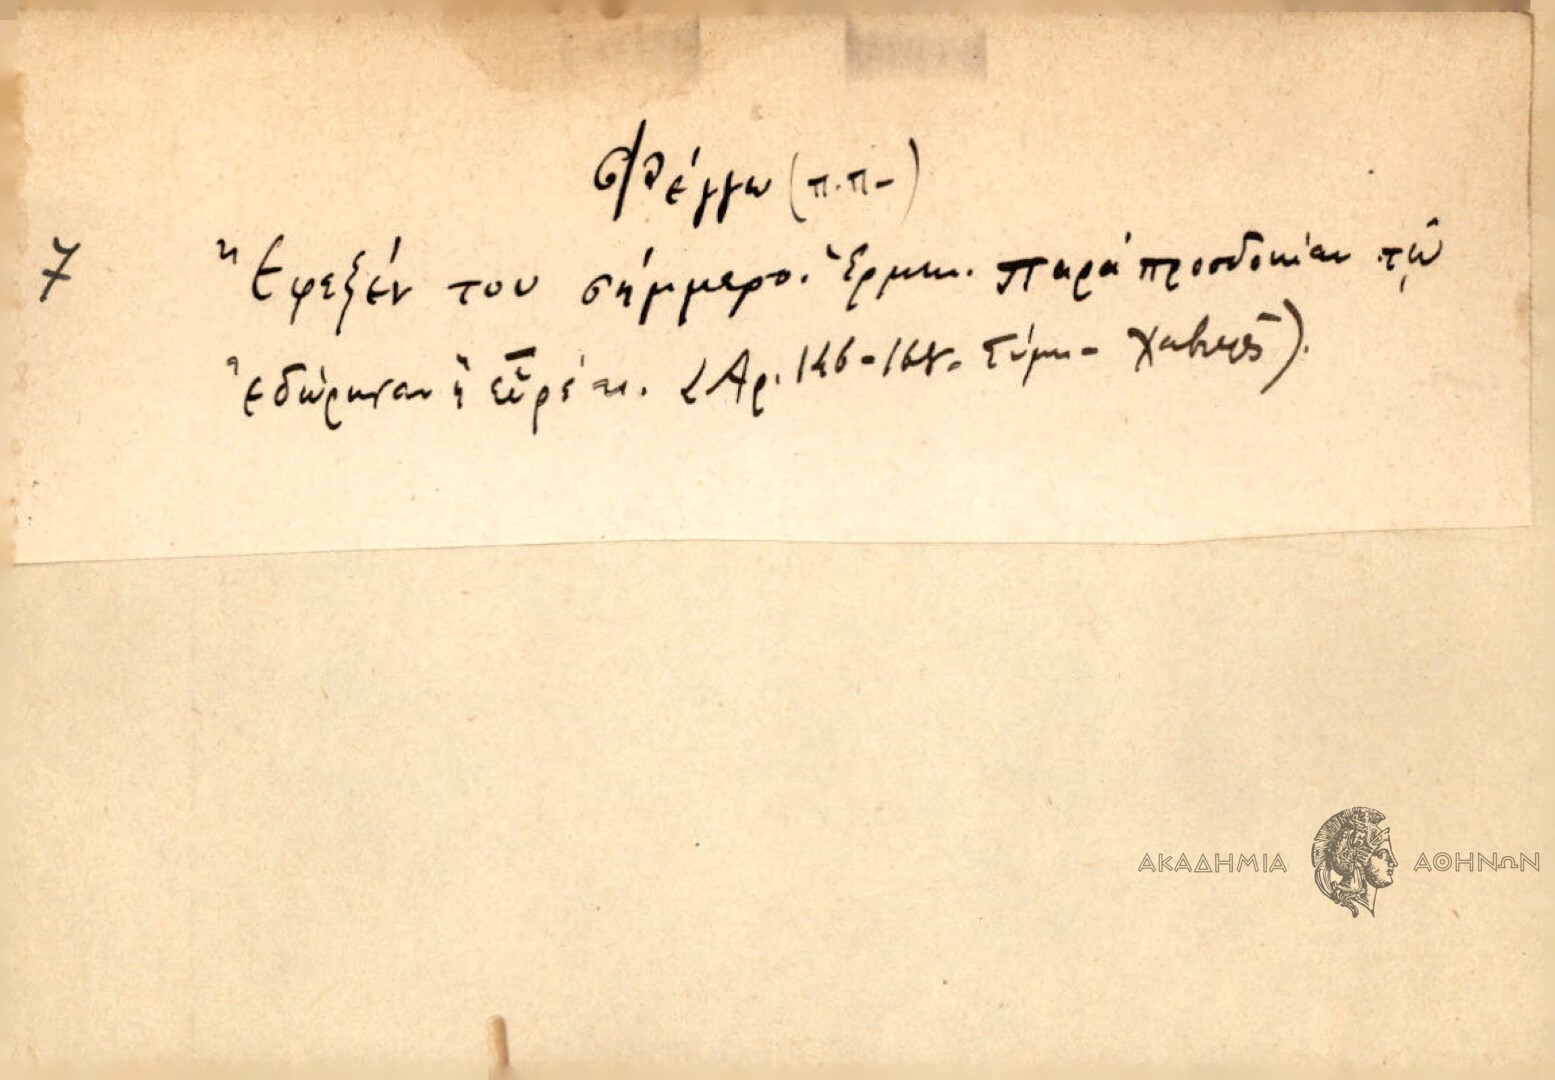 φέγγω (π.π-)
7 Ἔφεξέν του σήμμερο. Ἑρμην. Παρά προσδοκίαν τῷ
ἐδώρησαν ἢ εὗρέ τι. (Ἀρ. 146-168. Σύμη-
ΑΚΑΔΗΜΙΑ ΑΘΗΝΩΝ